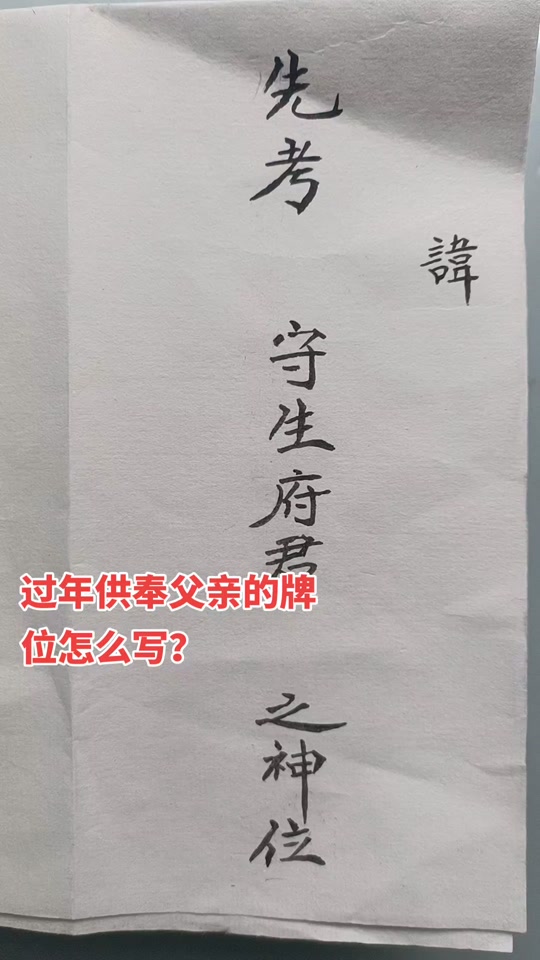 諱
先考 守生府君 之神位
过年供奉父亲的牌
位怎么写?